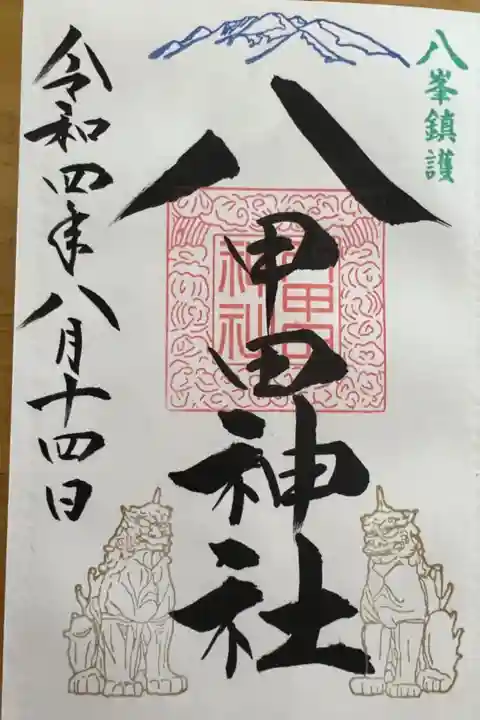 八峯鎮護
八甲田神社
八甲田
神社
令和四年八月十四日